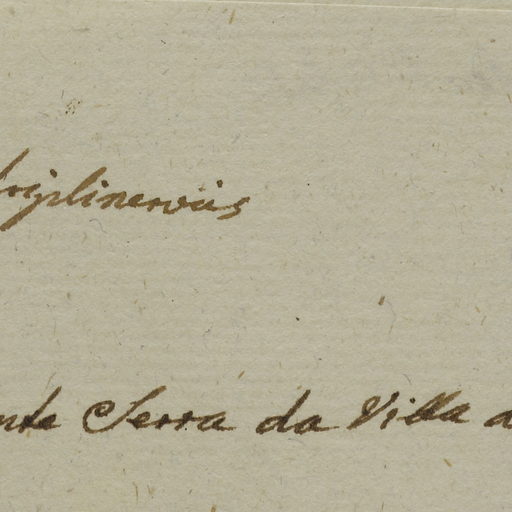 triplinervis
nte Serra da Villa d